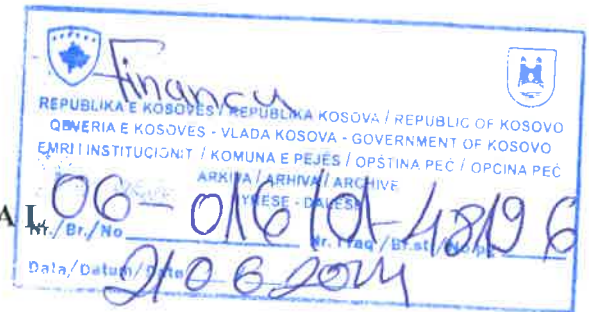 Financa
REPUBLIKA E KOSOVËS / REPUBLIKA KOSOVA / REPUBLIC OF KOSOVO
QEVERIA E KOSOVËS - VLADA KOSOVA - GOVERNMENT OF KOSOVO
EMRI I INSTITUCIONIT / KOMUNA E PEJËS / OPŠTINA PEĆ / OPĆINA PEĆ
ARKIVA / ARHIVA / ARCHIVE
HYRËSE - DALËSE
A L
Nr./Br./No 06-016/01-4819 Nr. i faq./Br.st./No.pg. 6
Data/Datum/Date 21 06 2024